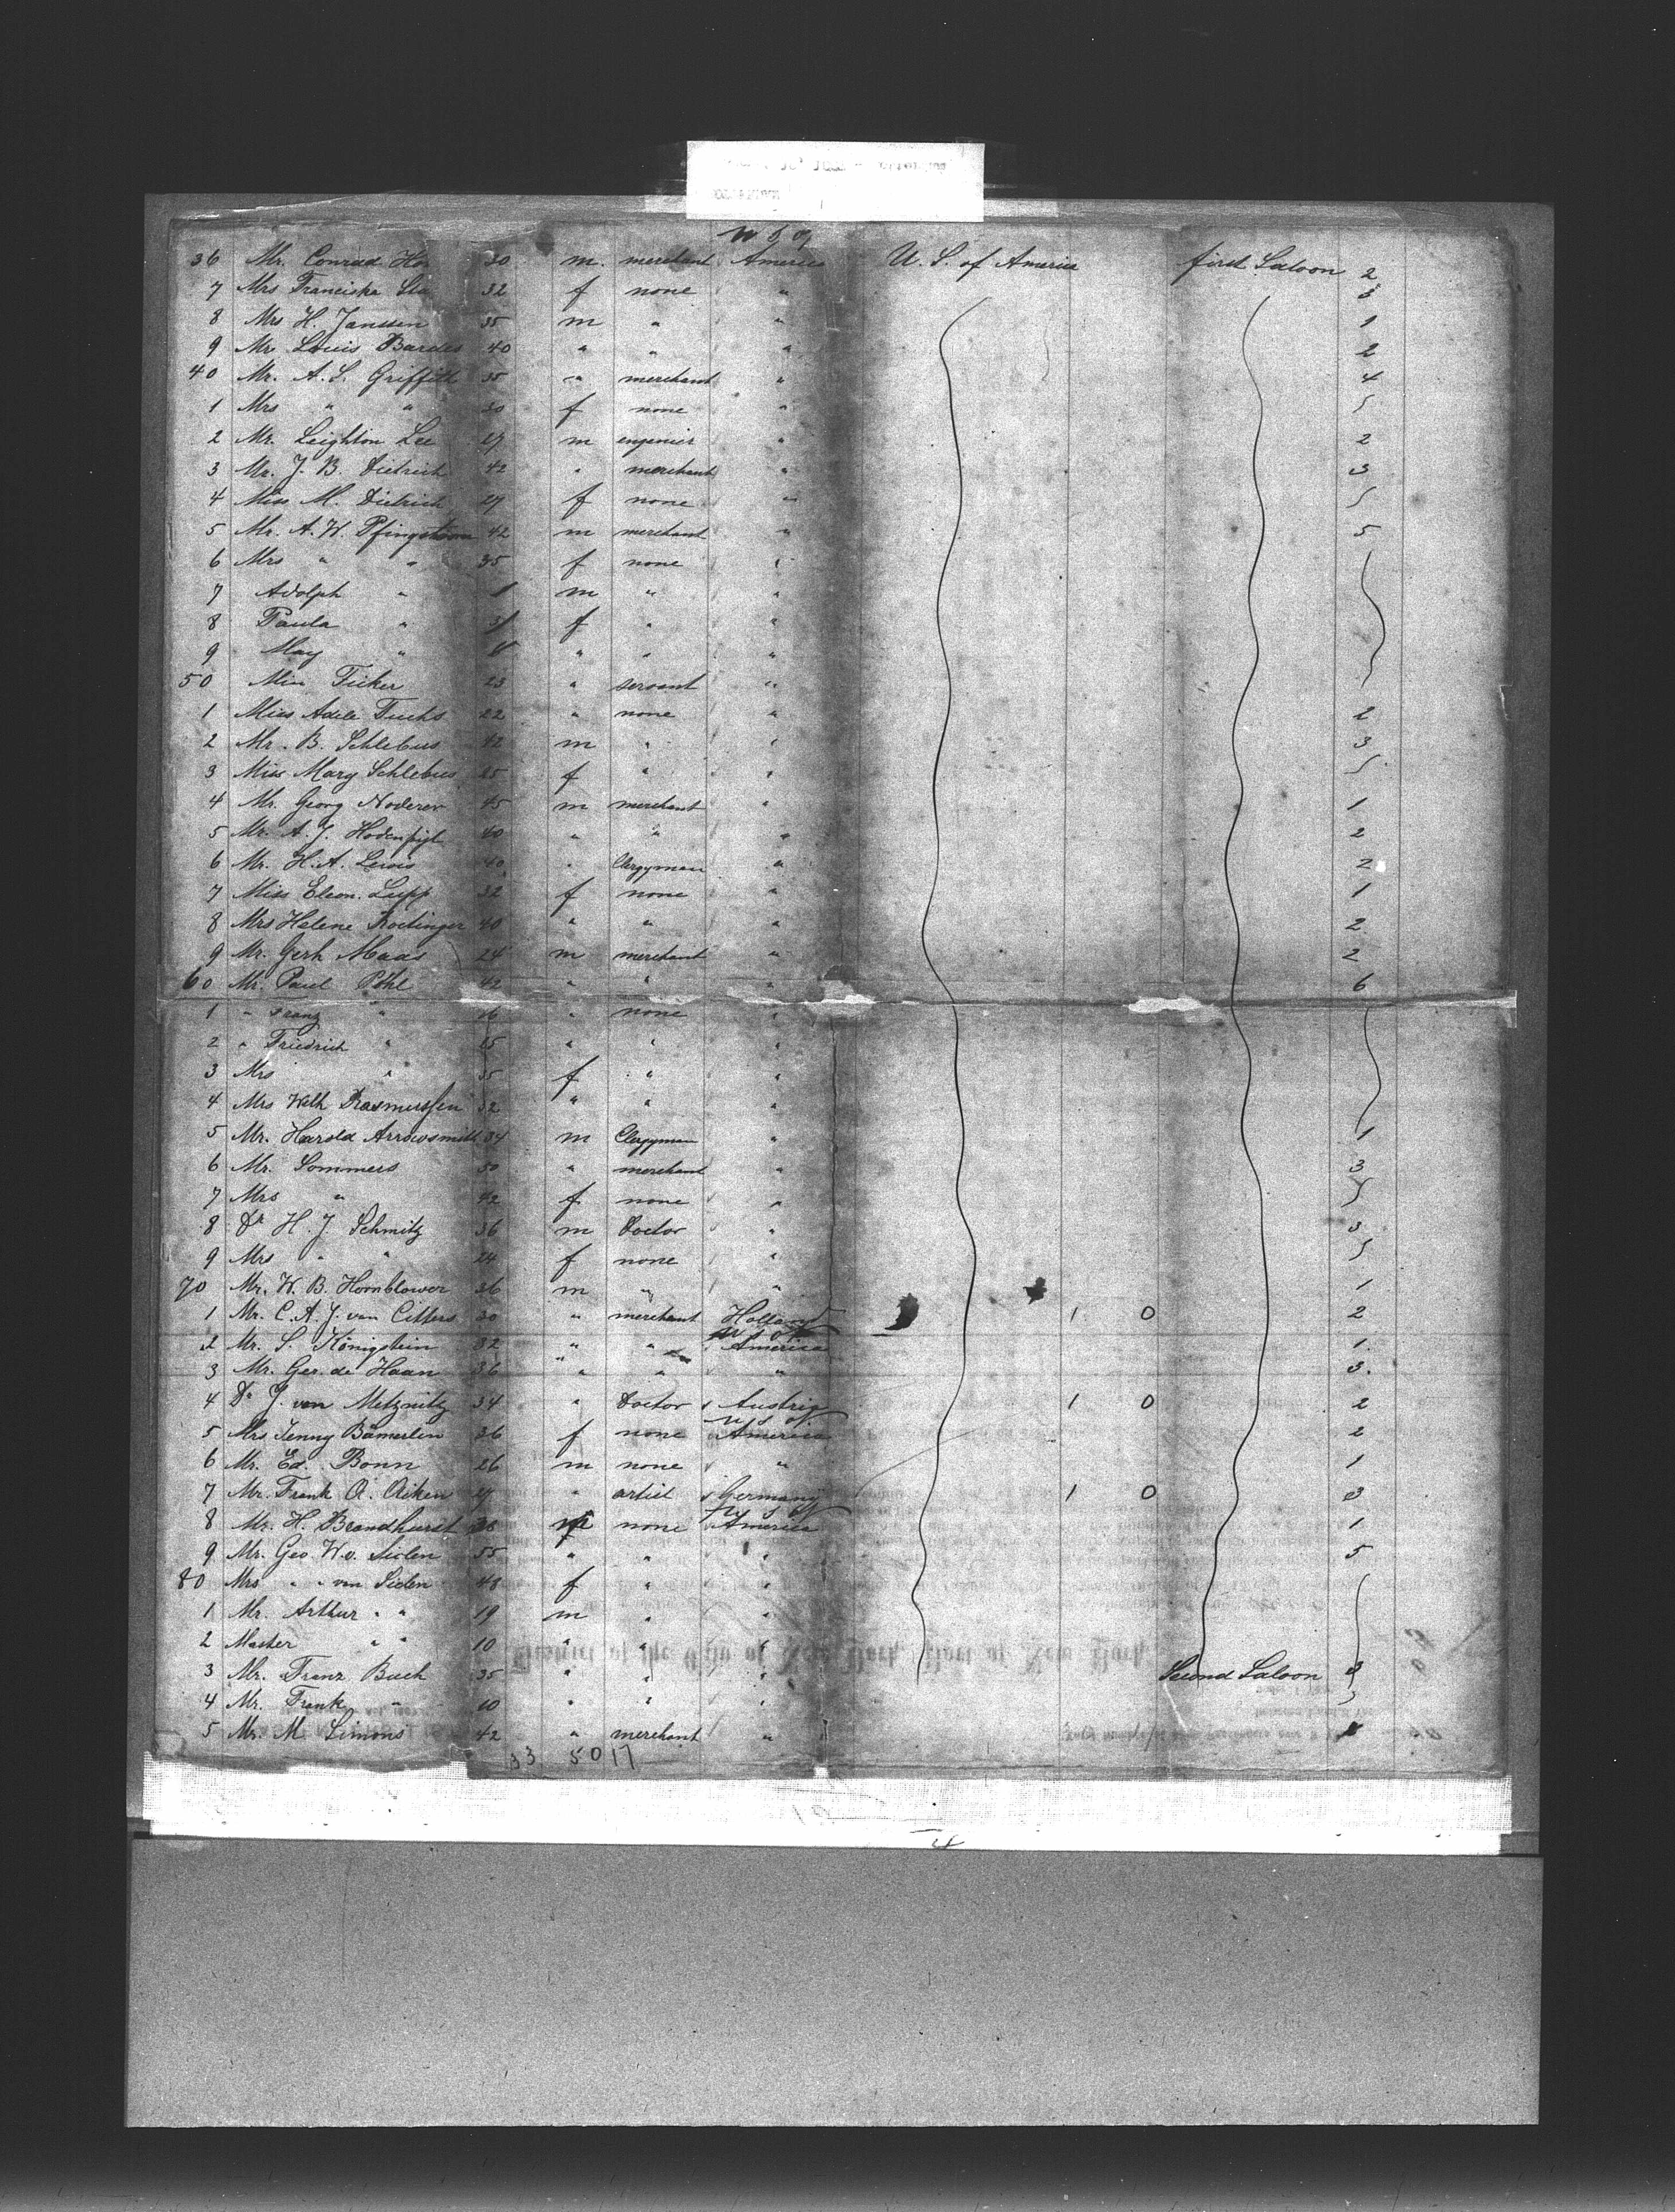 U S of
36 Mr. Conrad 30 m. merchant America U. S. of America first Saloon 2
7 Mrs Franciska 32 f none " 3
8 Mrs H. Janssen 35 m " " 1
9 Mr Louis Bardes 40 " " " 2
40 Mr. A. S. Griffith 35 " merchant " 4
1 Mrs " " 30 f none "
2 Mr. Leighton Lee 29 m engenier " 2
3 Mr. J. B. Dietrich 42 " merchant " 3
4 Miss M. Dietrich 29 f none "
5 Mr. A. W. 42 m merchant " 5
6 Mrs " " 35 f none "
7 Adolph " m " "
8 Paula " f " "
9 May " " " "
50 Min Ficker 23 " servant "
1 Miss Adele Fuchs 22 " none " 2
2 Mr. B. Schlebus 42 m " " 3
3 Miss Mary Schlebus 25 f " "
4 Mr. Georg Noderer 45 m merchant " 1
5 Mr. A. J. Hodenpyl 40 " " " 2
6 Mr. H. A. Lewis 40 " Clergyman " 2
7 Miss Eleon. Lupp 32 f none " 1
8 Mrs Helene Roetinger 40 " " " 2
9 Mr. Gerh Maas 24 m merchant " 2
60 Mr. Paul Pohl 42 " " " 6
1 " Franz " 16 " none "
2 " Friedrich " 15 " " "
3 Mrs " 35 f " "
4 Mrs Wilh Rasmussen 32 " " "
5 Mr. Harold Arrowsmith 34 m Clergyman " 1
6 Mr. Sommers 50 " merchant " 3
7 Mrs " 42 f none "
8 Dr H. J. Schmitz 36 m Doctor " 3
9 Mrs " " 24 f none "
70 Mr. W. B. Hornblower 36 m " " 1
1 Mr. C. A. J. van Citters 30 " merchant Holland 1 0 2
U S of
2 Mr. S. Königstein 32 " " America 1
3 Mr. Ger. de Haan 36 " " " 3.
4 Dr J. von Metznitz 34 " Doctor Austria 1 0 2
U S of
5 Mrs Jenny Bämerlen 36 f none America 2
6 Mr. Ed. Bonn 26 m none " 1
7 Mr. Frank A. Aiken 27 " artist Germany 1 0 3
U S of
8 Mr. H. Brandhurst 38 m none America 1
9 Mr. Geo W. v. Siclen 55 " " " 5
80 Mrs " " van Siclen 48 f " "
1 Mr. Arthur " " 19 m " "
2 Master " " 10 " " "
3 Mr. Franz Bach 35 " " " Second Saloon 3
4 Mr. Frank " 10 " " "
5 Mr. M. Simons 42 " merchant "
33 5017